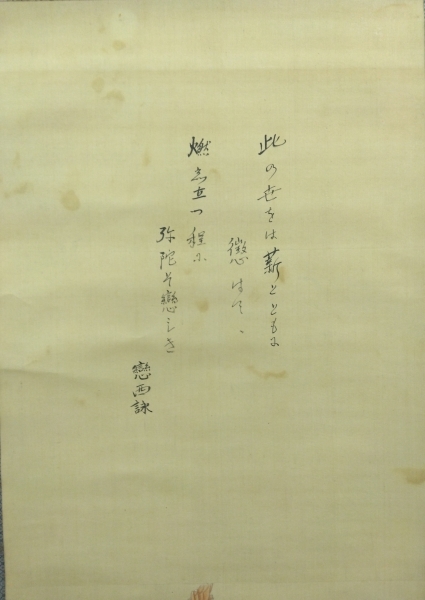 此の世をは薪とともに
懲はて、
燃え立つ程に
弥陀そ戀しき
戀西詠